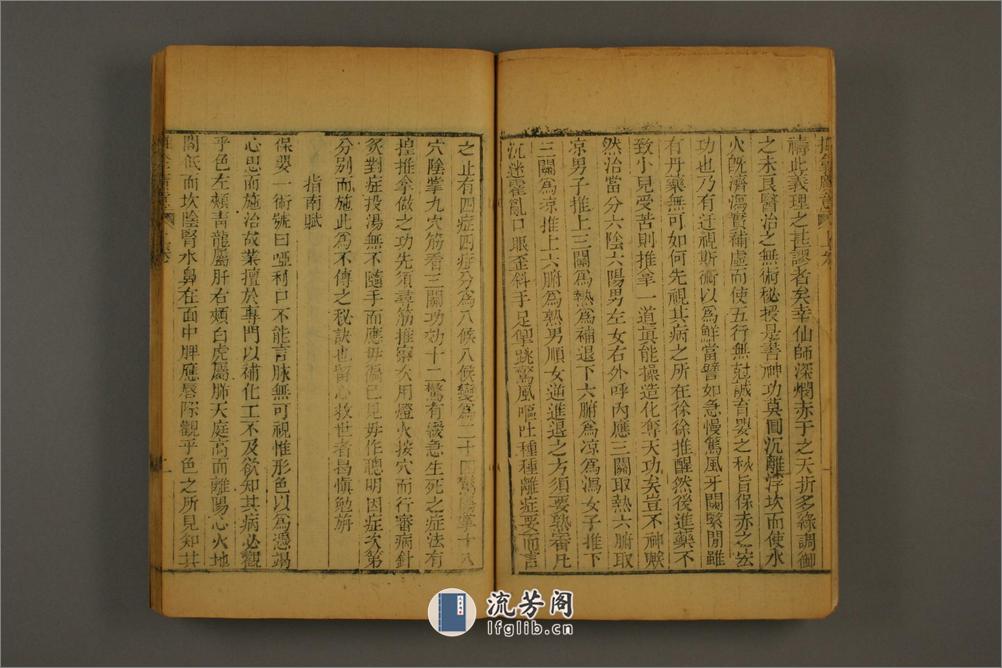 禱此義理之甚謬者矣幸仙師深憫赤子之夭折多緣調御
之未良醫治之無術秘授是書神功莫圓沉離浮坎而使水
火旣濟瀉實補虛而使五行無尅誠育嬰之秘旨保赤之宏
功也乃有迂視斯術以爲鮮當譬如急慢驚風牙關緊閉雖
有丹藥無可如何先視其病之所在徐徐推醒然後進藥不
致小兒受苦則推拿一道眞能操造化奪天功矣豈不神歟
然治當分六陰六陽男左女右外呼內應三關取熱六腑取
凉男子推上三關爲熱爲補退下六腑爲凉爲瀉女子推下
三關爲凉推上六腑爲熱男順女逆進退之方須要熟審凡
沉迷霍亂口眼歪斜手足掣跳驚風嘔吐種種離症要而言
之止有四症四症分爲八候八候變爲二十四驚陽掌十八
穴陰掌九穴筋看三關功効十二驚有緩急生死之症法有
推拿做之功先須尋筋推察次用燈火按穴而行審病針
對症投湯無不隨手而應毋偏已見毋作聰明因症次第
分別而施此爲不傳之秘訣也留心救世者曷愼勉旃
指南賦
保嬰一術號曰啞科口不能言脉無可視惟形色以爲憑竭
心思而施治故業擅於專門以補化工不及欲知其病必觀
乎色左頰靑龍屬肝右頰白虎屬肺天庭高而離陽心火地
閣低而坎陰腎水鼻在面中脾應唇際觀乎色之所見知其
流芳阁
lfglib.cn